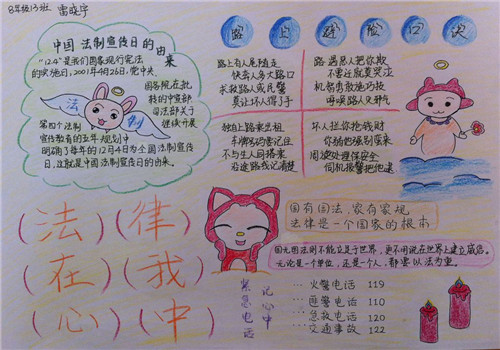 8年级13班 雷晓宇
中国法制宣传日的由来
"12.4"是我们国务现行宪法
的实施日,2001年4月26日,党中央
国务院在批
转的中宣部
司法部关于
继续开展
法 制
第四个法制
宣传教育的五年规划中
明确了每年的12月4日为全国法制宣传
日,这就是中国法制宣传日的由来。
路上避险口诀
路上有人总随走
快去人多大路口
求救路人或民警
莫让坏人得了手
路遇恶人把你救
不要还就莫哭泣
机智勇敢施巧技
呼唤路人又解气
独自上路乘出租
车牌号码要记住
不与生人同搭乘
沿途路线记清楚
坏人拦你抢钱财
你劝他强别原来
周旋处理保安全
伺机报警把他逮
(法)(律)
(在)(我)
(心)(中)
国有国法,家有家规
法律是一个国家的根本
国无国法则不能立足于世界,更不用说在世界上建立威信。
无论是一个单位,还是一个人,都要以法为重。
紧急电话
记心中
…火警电话 119
…匪警电话 110
…急救电话 120
…交通事故 122